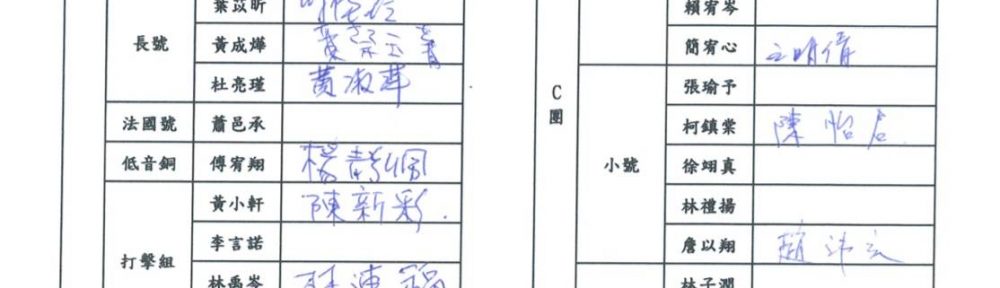 葉苡昕
長號
黃成燁
杜亮瑾 黃淑萍
法國號 蕭邑承
低音銅 傅宥翔 楊靜佩
黃小軒 陳新彩
打擊組
李言諾
林禹岑
C團
賴宥岑
簡宥心
小號
張瑜予
柯鎮棠 陳怡君
徐翊真
林禮揚
詹以翔
林子潤